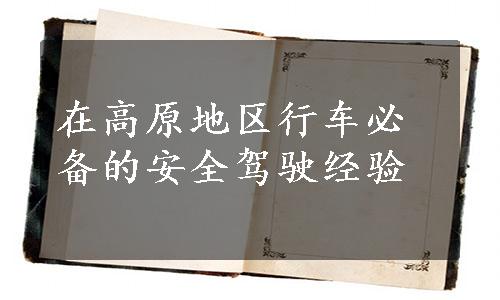 在高原地区行车必
备的安全驾驶经验